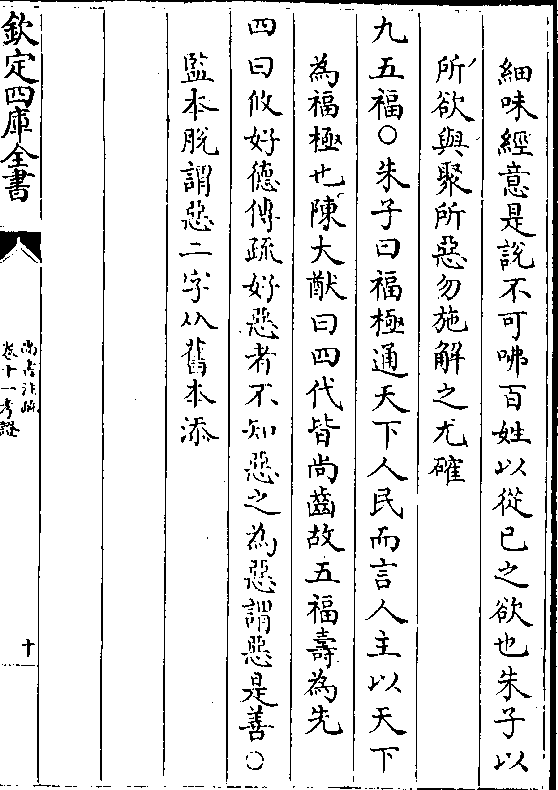 細味經意是說不可咈百姓以從已之欲也朱子以
所欲與聚所惡勿施解之尤確
九五福○朱子曰福極通天下人民而言人主以天下
為福極也陳大猷曰四代皆尚齒故五福壽為先
四曰攸好德傳疏好惡者不知惡之為惡謂惡是善○
監本脫謂惡二字从舊本添
欽定四庫全書
尚書注疏
卷十一考證
十